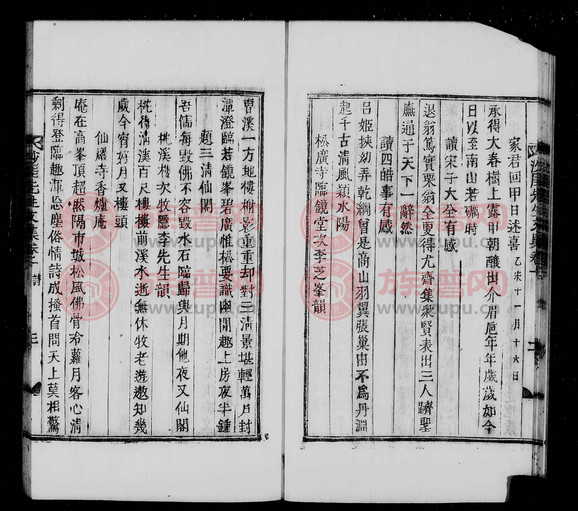 家君回甲日述喜 乙未十一月十六日
承得大春樹上露甲朝釀出介眉巵年年歲歲如今
日以至南山若礪時
讀宋子大全有感
退翁篤實栗翁全更得尤齋集衆賢表出三人躋聖
廡通于天下一辭然
讀四皓事有感
呂姬挾幼弄乾綱曾是商山羽翼張巢由不爲丹淵
起千古淸風潁水陽
松廣寺臨鏡堂次李芝峯韻
曹溪一方地樓柳影重重却對三淸景堪輕萬戶封
潭澄臨若鏡峯碧廣惟松要識幽閒趣上房夜半鍾
題三淸仙閣
吾儒每毁佛不容毁水石臨歸與月期他夜又仙閣
桃溪樓次牧隱李先生韻
桃得淸溪百尺樓樓前溪水逝無休牧老遊遨知幾
歲今宵好月又樓頭
仙巖寺香爐庵
庵在高峯頂超然陽市城松風佛骨冷蘿月客心淸
剩得登臨趣渾忘塵俗情詩成搔首問天上莫相驚